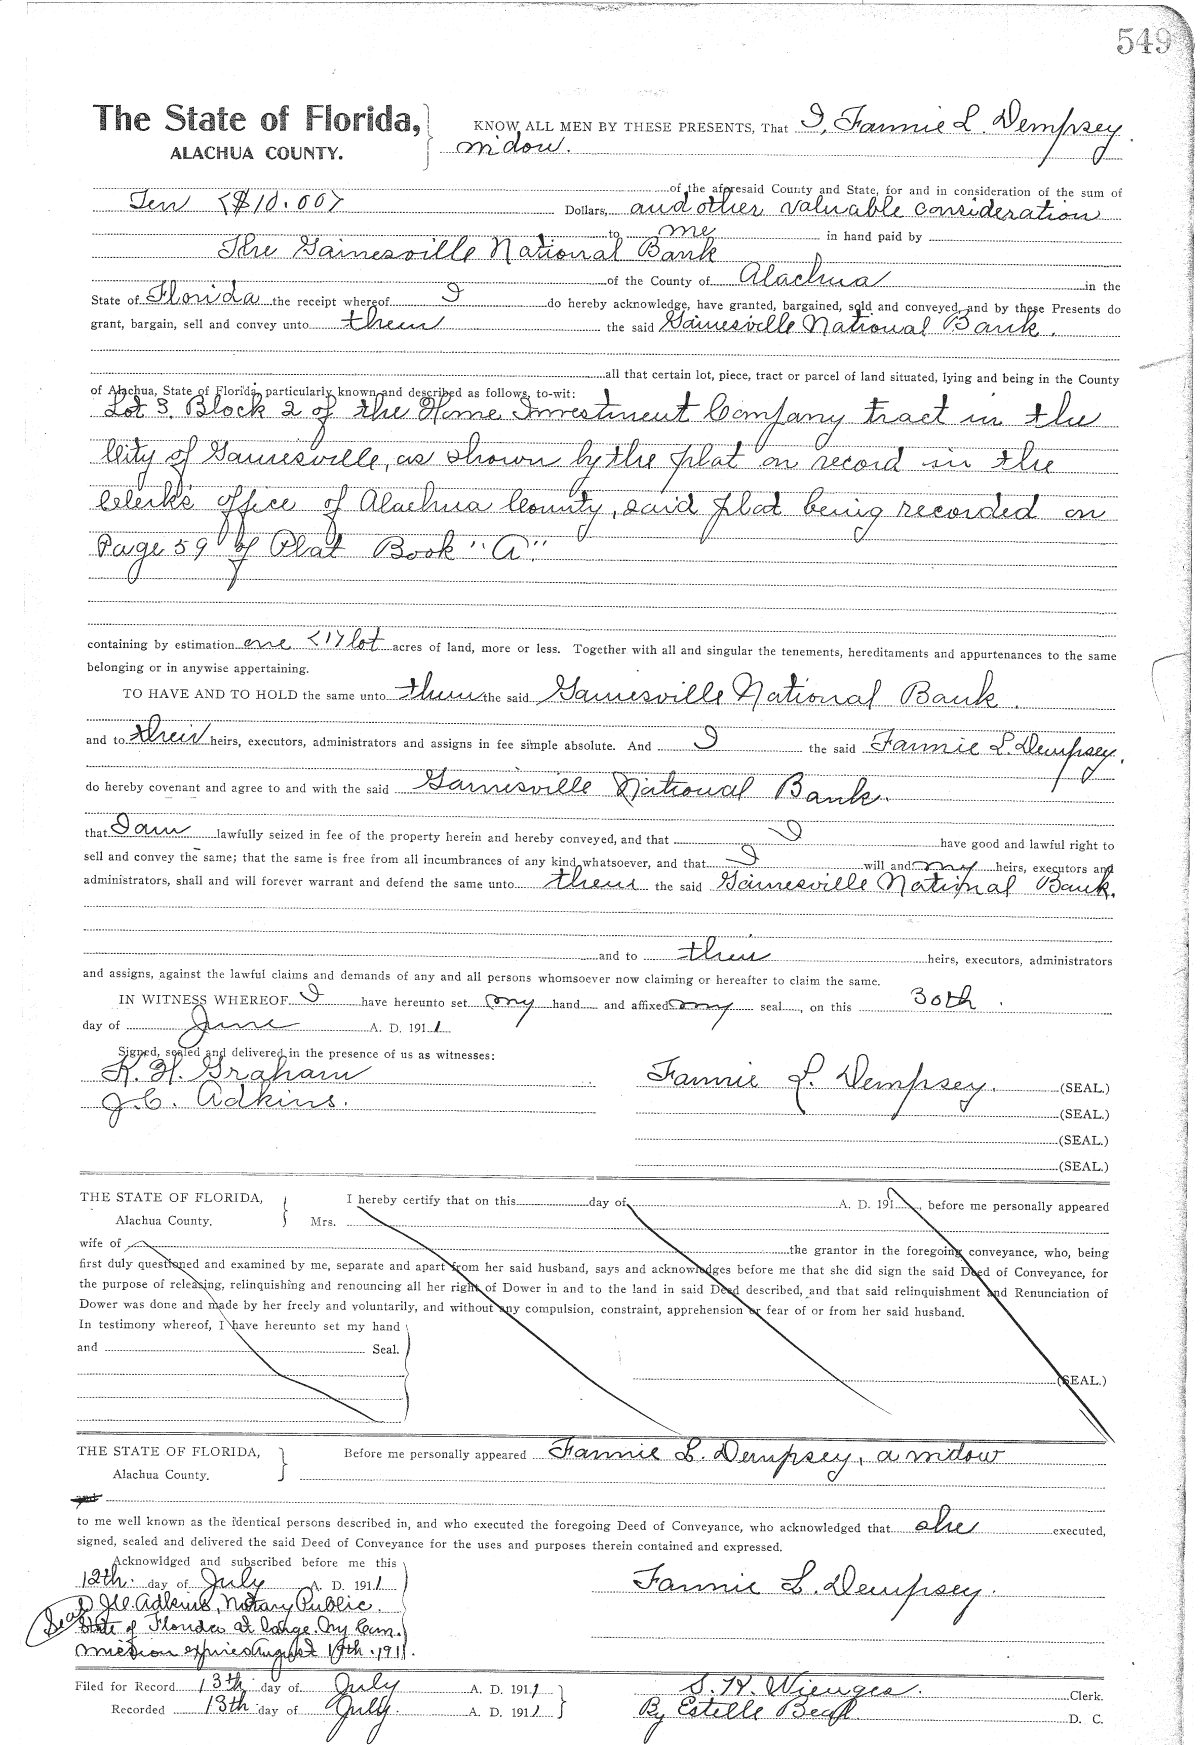 549
The State of Florida, KNOW ALL MEN BY THESE PRESENTS, That I, Fannie L. Dempsey
ALACHUA COUNTY. widow.
of the aforesaid County and State, for and in consideration of the sum of
Ten ($10.00) Dollars, and other valuable consideration
to me in hand paid by
The Gainesville National Bank
of the County of Alachua in the
State of Florida the receipt whereof I do hereby acknowledge, have granted, bargained, sold and conveyed, and by these Presents do
grant, bargain, sell and convey unto them the said Gainesville National Bank.
all that certain lot, piece, tract or parcel of land situated, lying and being in the County
of Alachua, State of Florida, particularly known and described as follows, to-wit:
Lot 3. Block 2 of the Home Investment Company tract in the
City of Gainesville, as shown by the plat on record in the
Clerk's office of Alachua County, said plat being recorded on
Page 59 of Plat Book "A".
containing by estimation one (1) lot acres of land, more or less. Together with all and singular the tenements, hereditaments and appurtenances to the same
belonging or in anywise appertaining.
TO HAVE AND TO HOLD the same unto them the said Gainesville National Bank.
and to their heirs, executors, administrators and assigns in fee simple absolute. And I the said Fannie L. Dempsey.
do hereby covenant and agree to and with the said Gainesville National Bank.
that I am lawfully seized in fee of the property herein and hereby conveyed, and that I have good and lawful right to
sell and convey the same; that the same is free from all incumbrances of any kind whatsoever, and that I will and my heirs, executors and
administrators, shall and will forever warrant and defend the same unto them the said Gainesville National Bank.
and to their heirs, executors, administrators
and assigns, against the lawful claims and demands of any and all persons whomsoever now claiming or hereafter to claim the same.
IN WITNESS WHEREOF I have hereunto set my hand and affixed my seal, on this 30th.
day of June A. D. 1911.
Signed, sealed and delivered in the presence of us as witnesses:
K. H. Graham Fannie L. Dempsey. (SEAL.)
J. C. Adkins. (SEAL.)
(SEAL.)
(SEAL.)
THE STATE OF FLORIDA, I hereby certify that on this day of A. D. 191 , before me personally appeared
Alachua County. Mrs.
wife of the grantor in the foregoing conveyance, who, being
first duly questioned and examined by me, separate and apart from her said husband, says and acknowledges before me that she did sign the said Deed of Conveyance, for
the purpose of releasing, relinquishing and renouncing all her right of Dower in and to the land in said Deed described, and that said relinquishment and Renunciation of
Dower was done and made by her freely and voluntarily, and without any compulsion, constraint, apprehension or fear of or from her said husband.
In testimony whereof, I have hereunto set my hand
and Seal.
(SEAL.)
THE STATE OF FLORIDA, Before me personally appeared Fannie L. Dempsey, a widow
Alachua County.
and
to me well known as the identical persons described in, and who executed the foregoing Deed of Conveyance, who acknowledged that she executed,
signed, sealed and delivered the said Deed of Conveyance for the uses and purposes therein contained and expressed.
Acknowldged and subscribed before me this
12th. day of July A. D. 1911 Fannie L. Dempsey.
J.C. Adkins, Notary Public.
Seal State of Florida at Large. My Com.
mission expires August 19th. 1911.
Filed for Record 13th day of July A. D. 1911 S. H. Wienges. Clerk.
Recorded 13th day of July. A. D. 1911 By Estelle D. C.